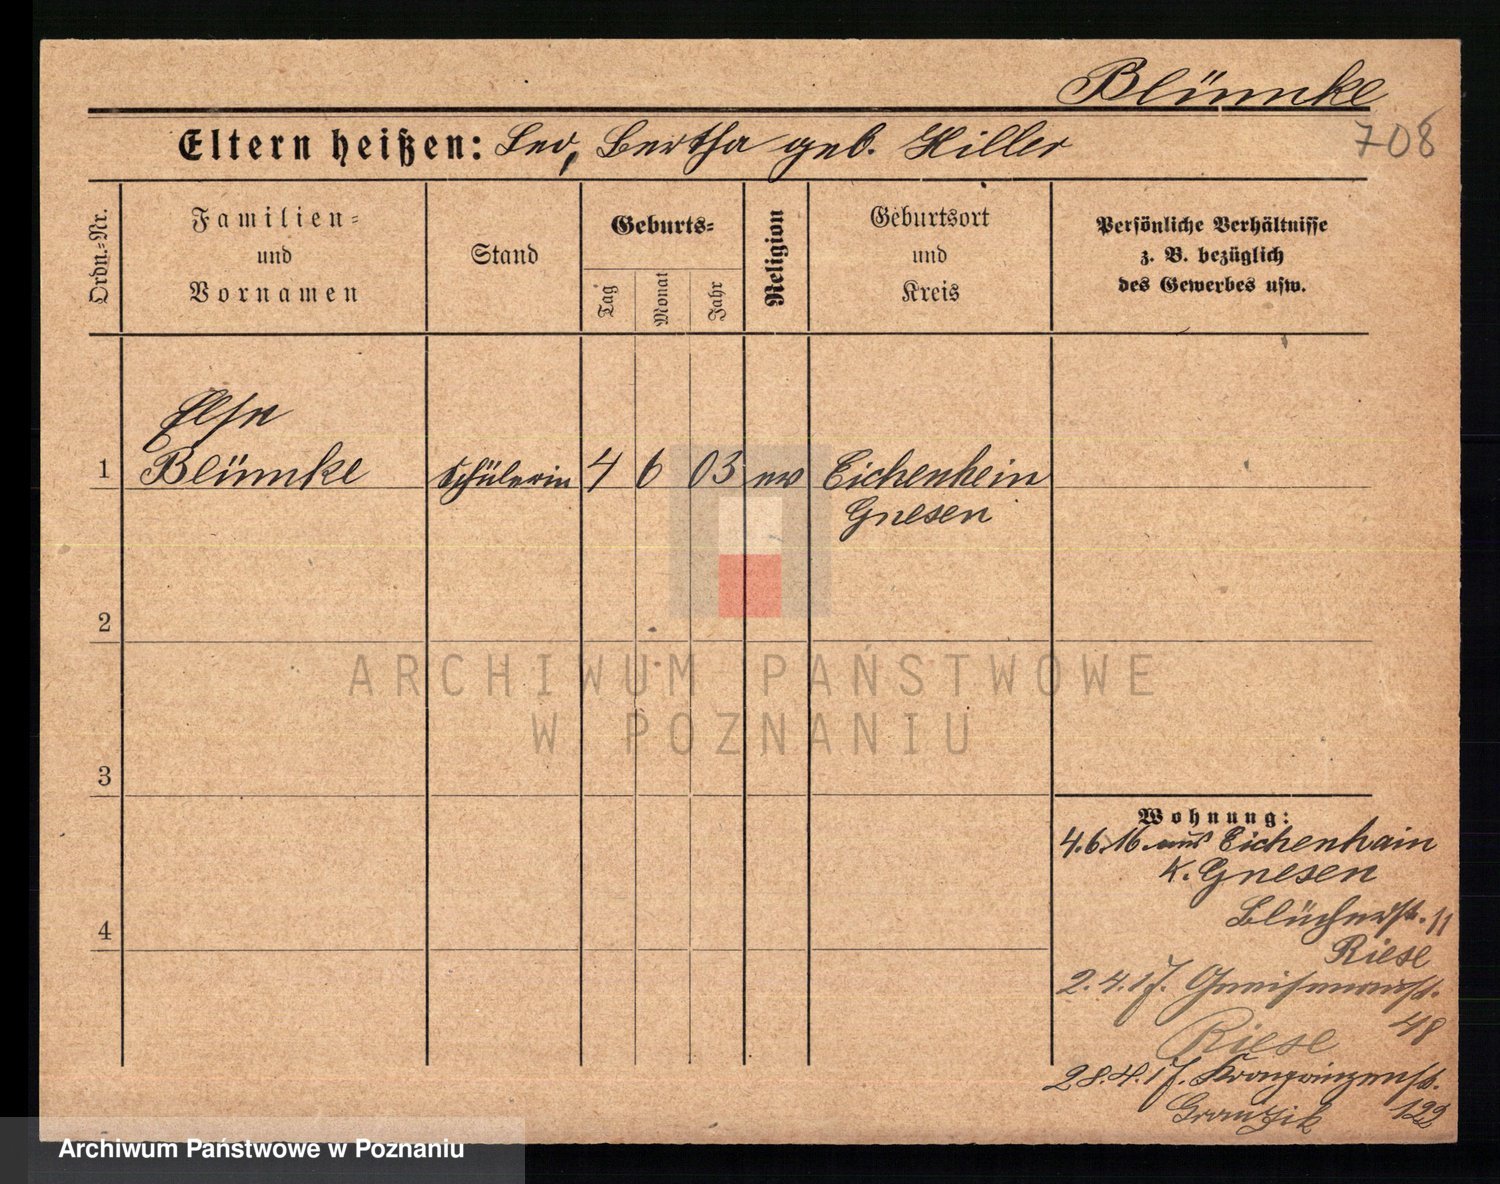 Blümke
708
Eltern heißen: Leo, Bertha geb. Hiller
Ordn.-Nr.
Familien-
und
Vornamen
Stand
Geburts-
Tag
Monat
Jahr
Religion
Geburtsort
und
Kreis
Persönliche Verhältnisse
z. B. bezüglich
des Gewerbes usw.
Else
1 Blümke Schülerin 4 6 03 ev Eichenhein
Gnesen
2
3
4
Wohnung:
4.6.16. aus Eichenhain
K. Gnesen
Blücherstr. 11
Riese
2.4.17. Gneisenaustr.
48
Riese
28.4.17. Kronprinzenstr.
122
ARCHIWUM PAŃSTWOWE
W POZNANIU
Archiwum Państwowe w Poznaniu